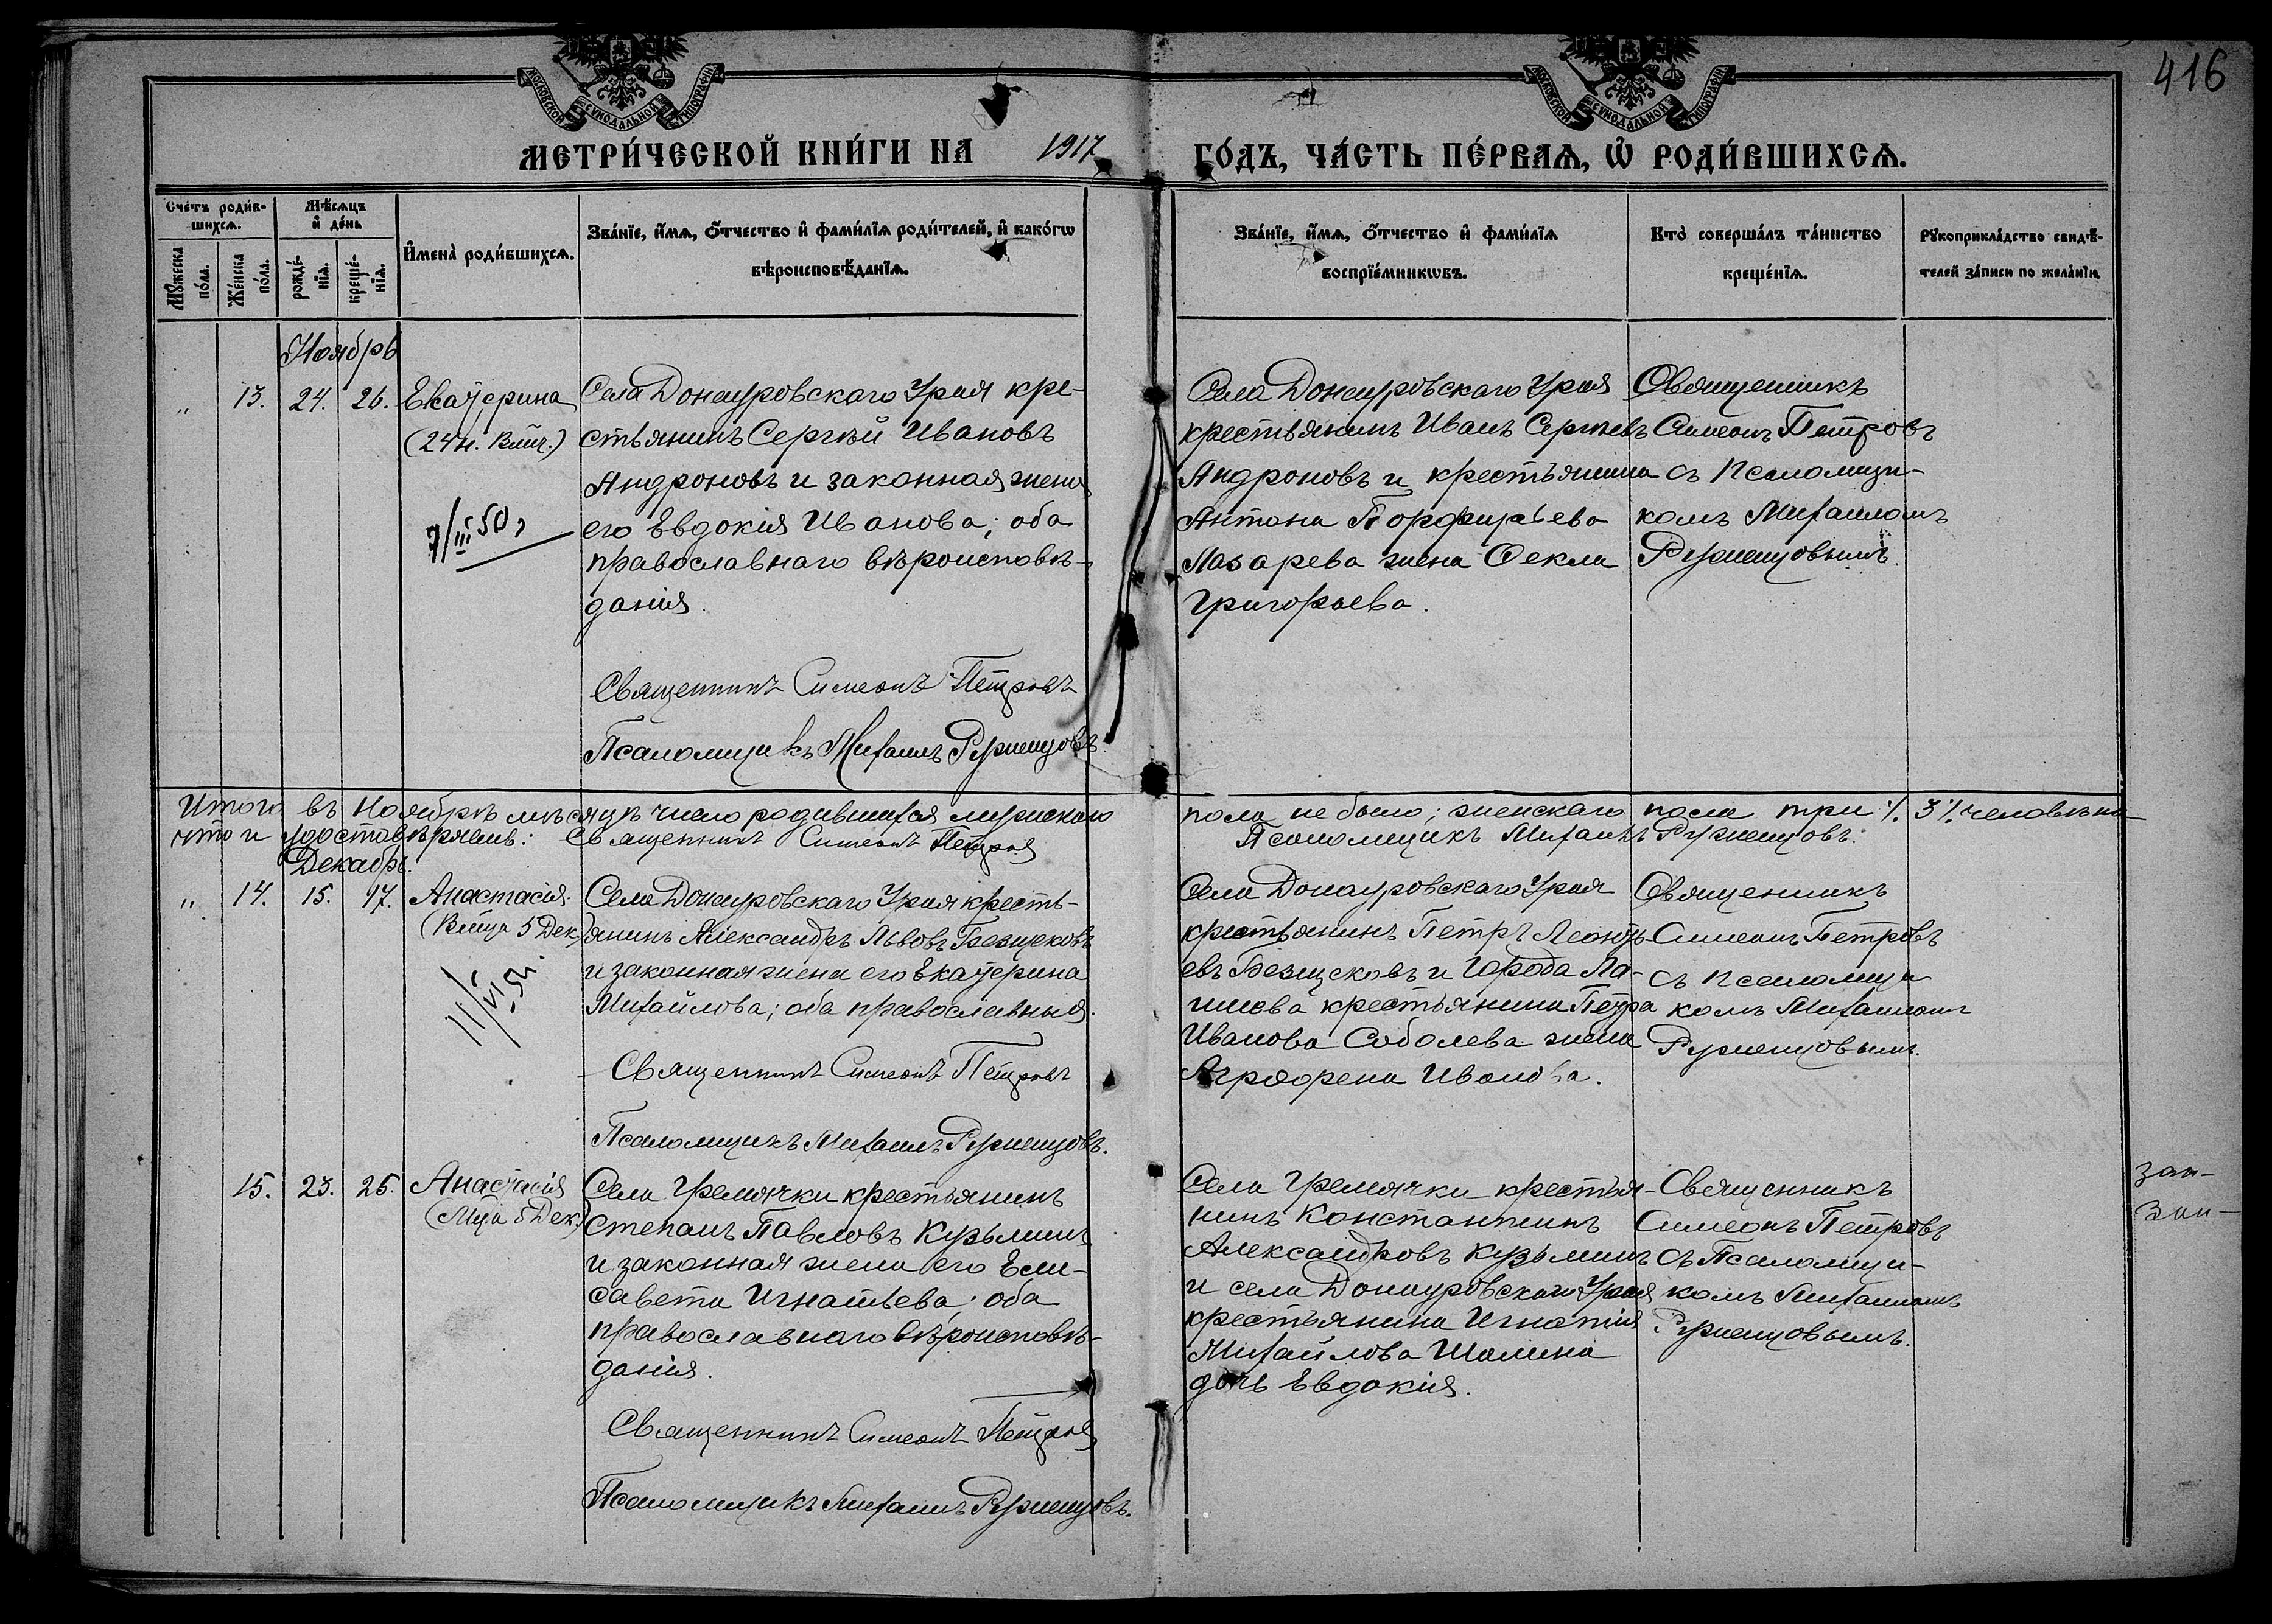 416
МОСКОВСКОЙ СѴНОДАЛЬНОЙ ТИПОГРАФІИ
МОСКОВСКОЙ СѴНОДАЛЬНОЙ ТИПОГРАФІИ
МЕТРИ́ЧЕСКОЙ КНИ́ГИ НА 1917 ГО́ДЪ, ЧА́СТЬ ПЕ́РВАѦ, Ѿ РОДИ́ВШИХСѦ.
Сче́тъ роди́в-
шихсѧ.
Мꙋ́жеска по́ла.
Же́нска по́ла.
Мѣ́сѧцъ и де́нь
рожде́-нїѧ.
креще́-нїѧ.
Имена̀ роди́вшихсѧ.
Зва́нїе, и́мѧ, ѻ́тчество и фами́лїѧ роди́телей, и како́гѡ
вѣроисповѣ́данїѧ.
Зва́нїе, и́мѧ, ѻ́тчество и фами́лїѧ
воспрїе́мникѡвъ.
Кто̀ соверша́лъ та́инство
креще́нїѧ.
Рꙋкоприкла́дство свидѣ́-
телей за́писи по жела́нїю.
Ноябрь
" 13. 24. 26. Екатерина
(24 н. Вмч.)
7/III 50 г
Села Донауровскаго Урая кре-
стьянинъ Сергѣй Ивановъ
Андроновъ и законная жена
его Евдокія Иванова; оба
православнаго вѣроисповѣ-
данія.
Священникъ Симеонъ Петровъ
Псаломщикъ Михаилъ Румянцовъ
Села Донауровскаго Урая
крестьянинъ Иванъ Сергѣевъ
Андроновъ и крестьянина
Антона Порфирьева
Лазарева жена Ѳекла
Григорьева.
Священникъ
Симеонъ Петровъ
съ Псаломщи-
комъ Михаиломъ
Румянцовымъ.
Итого въ Ноябрѣ мѣсяцѣ число родившихся мужскаго пола не было; женскаго пола три ⁒ 3 ⁒ человѣка
что и удостовѣряемъ: Священникъ Симеонъ Петровъ Псаломщикъ Михаилъ Румянцовъ.
Декабрь.
" 14. 15. 17. Анастасія.
(Вмца 5 Дек.)
11/VI 51.
Села Донауровскаго Урая кресть-
янинъ Александръ Львовъ Безщековъ
и законная жена его Екатерина
Михайлова; оба православныя.
Священникъ Симеонъ Петровъ
Псаломщикъ Михаилъ Румянцовъ.
Села Донауровскаго Урая
крестьянинъ Петръ Леонть-
евъ Безщековъ и города Ла-
ишева крестьянина Петра
Иванова Соболева жена
Аграфена Иванова.
Священникъ
Симеонъ Петровъ
съ псаломщи
комъ Михаиломъ
Румянцовымъ.
15. 23. 25. Анастасія
(Мца 5 Дек.)
Села Гремячки крестьянинъ
Степанъ Павловъ Кузьминъ
и законная жена его Ели-
савета Игнатьева; оба
православнаго вѣроисповѣ-
данія.
Священникъ Симеонъ Петровъ
Псаломщикъ Михаилъ Румянцовъ.
Села Гремячки крестья-
нинъ Константинъ
Александровъ Кузьминъ
и села Донауровскаго Урая
крестьянина Игнатія
Михайлова Шалина
дочь Евдокія.
Священникъ
Симеонъ Петровъ
съ Псаломщи-
комъ Михаиломъ
Румянцовымъ.